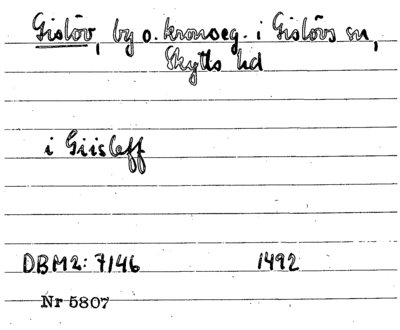 Gislöv, by o. kronoeg. i Gislövs sn,
Skytts hd
i Giisleff
DBM2: 7146 1492
Nr 5807